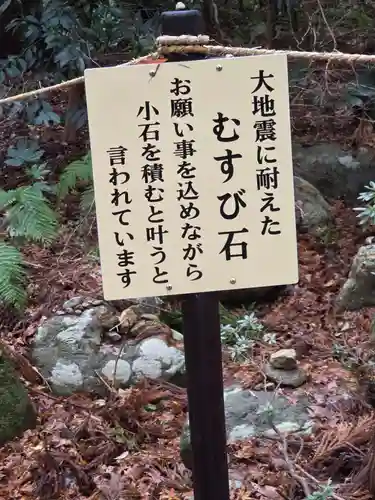 大地震に耐えた
むすび石
お願い事を込めながら
小石を積むと叶うと
言われています